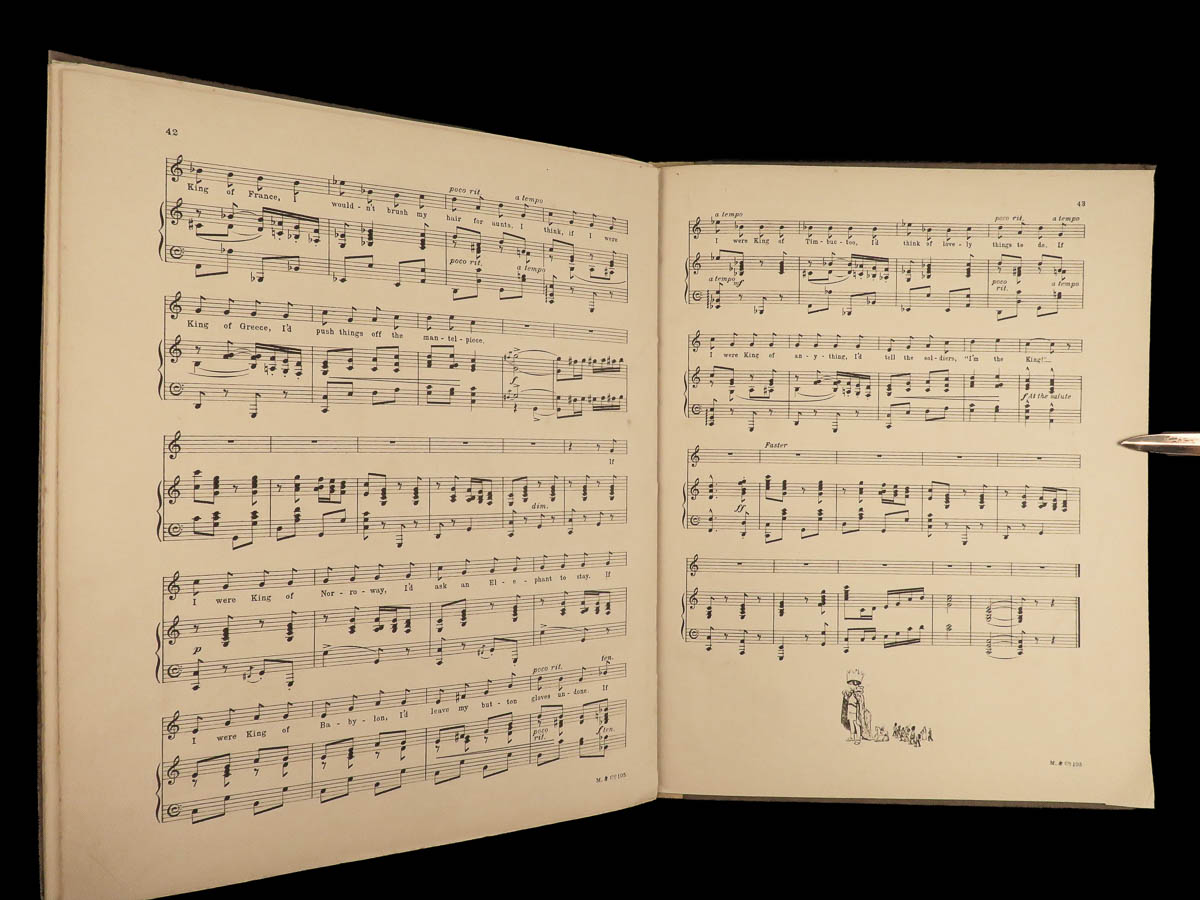 42
poco rit. a tempo
King of France, I would-n't brush my hair for aunts, I think, if I were
poco rit. a tempo
King of Greece, I'd push things off the man-tel-piece.
f
If
dim.
I were King of Nor-ro-way, I'd ask an El-e-phant to stay. If
p
poco rit. ten.
I were King of Ba-by-lon, I'd leave my but-ton gloves un-done. If
poco rit. f ten.
M. & Co 105
43
a tempo poco rit. a tempo
I were King of Tim-buc-too, I'd think of love-ly things to do. If
a tempo mf poco rit. a tempo
I were King of an-y-thing, I'd tell the sol-diers, "I'm the King!"
f At the salute
Faster
ff
M. & Co 105